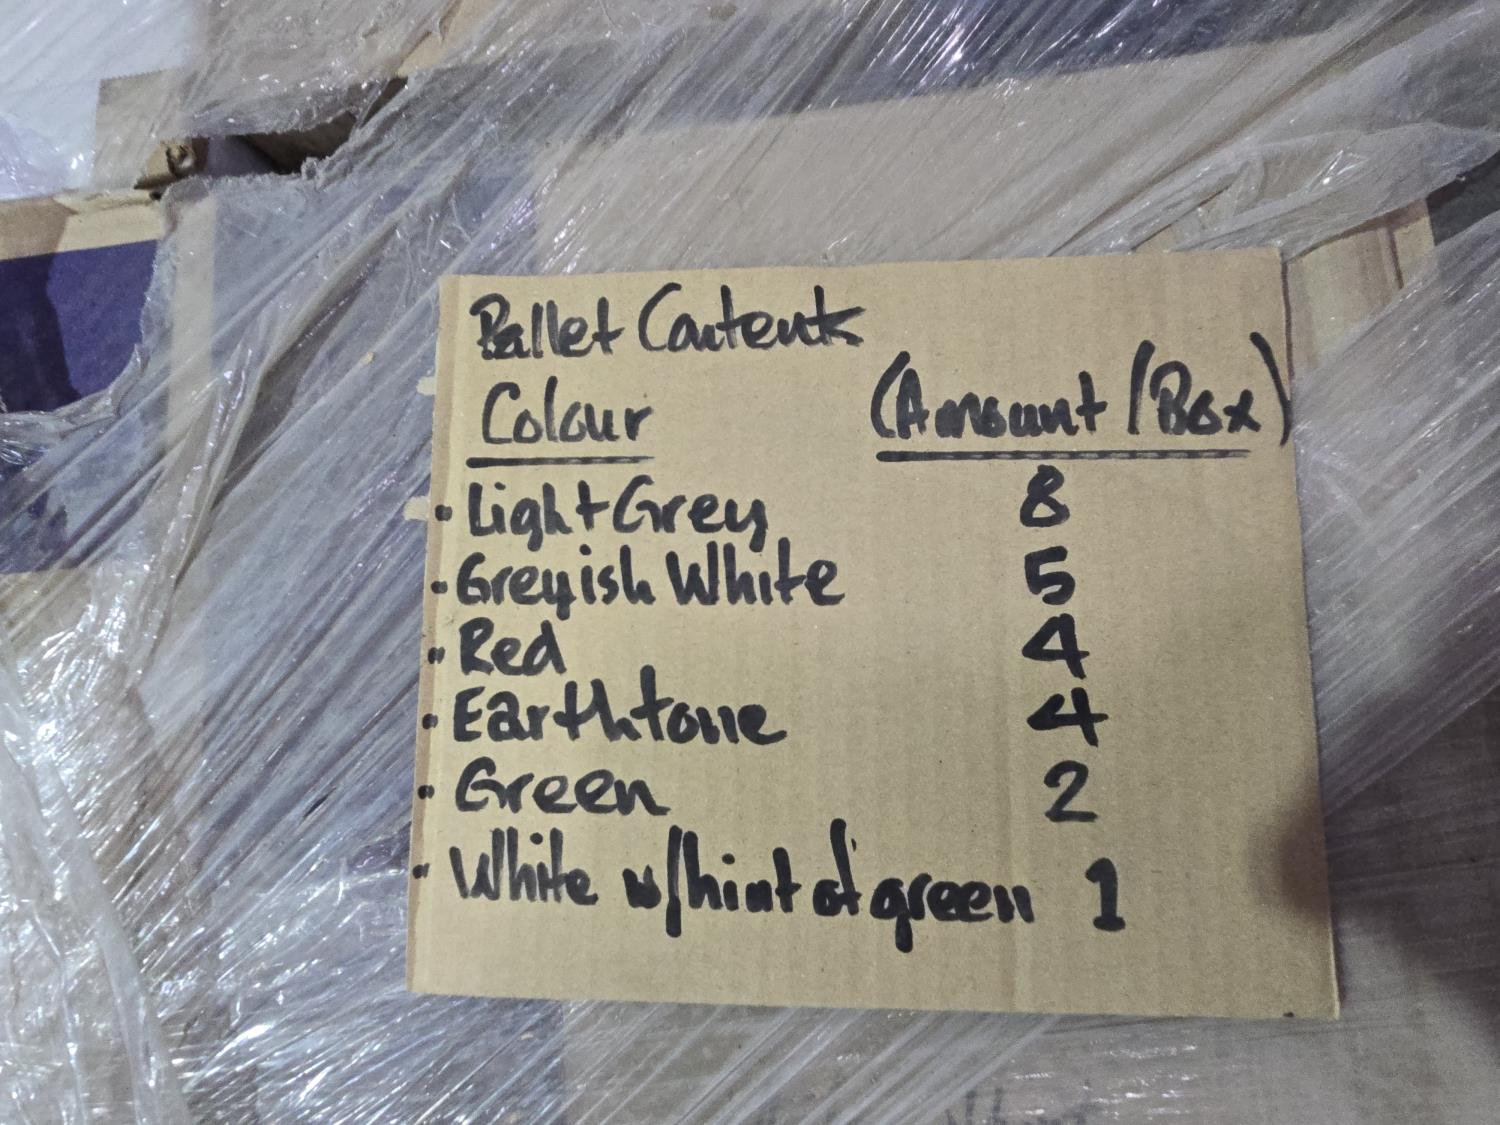 Pallet Contents
Colour (Amount/Box)
• Light Grey 8
• Greyish White 5
• Red 4
• Earthtone 4
• Green 2
• White w/hint of green 1